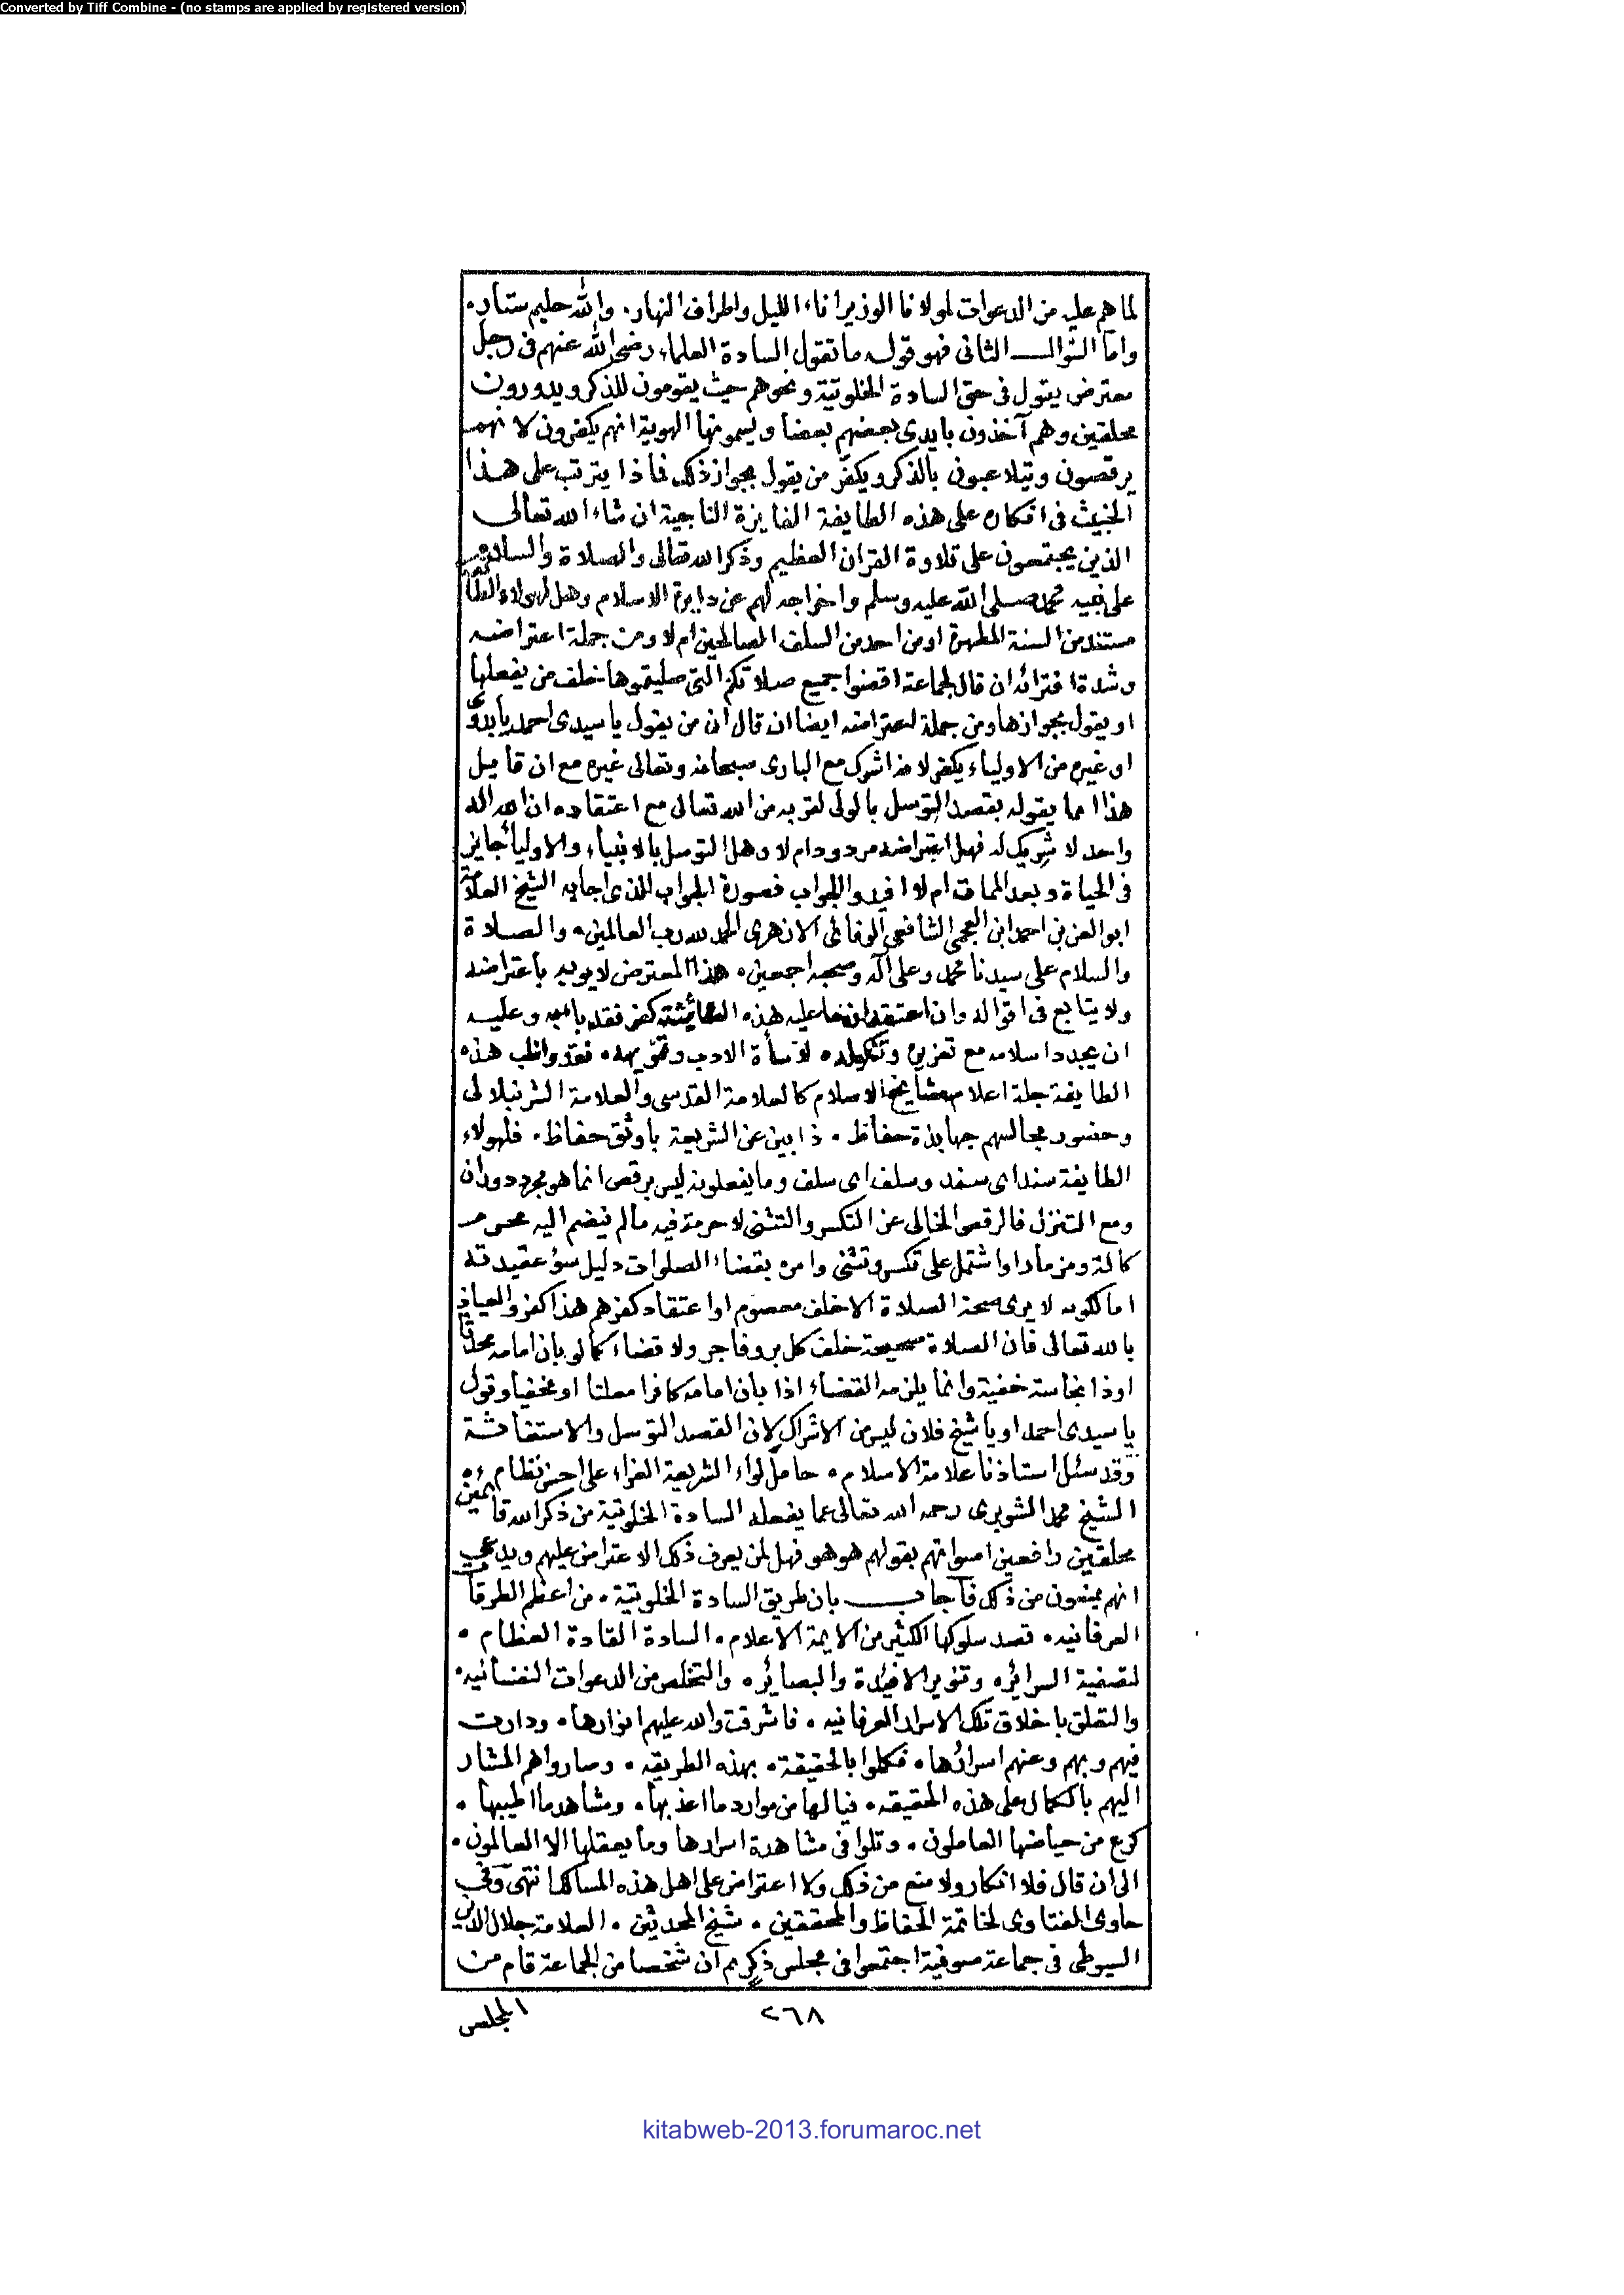 Converted by Tiff Combine - (no stamps are applied by registered version)
لما هم عليه من الدعوات لمولانا الوزير اناء الليل واطراف النهار. والله حليم ستار.
واما السؤال الثانى فهو قوله ما تقول السادة العلماء رضى الله عنهم فى رجل
معترض يقول فى حق السادة الخلوتية ونحوهم حيث يقومون للذكر ويدورون
محلقين وهم آخذون بايدى بعضهم بعضا ويسمونها الهوية انهم يكفرون لانهم
يرقصون ويتلاعبون بالذكر ويكفر من يقول بجواز ذلك فماذا يترتب على هذا
الخبيث فى انكاره على هذه الطايفة الفايزة الناجية ان شاء الله تعالى
الذين يجتمعون على تلاوة القران العظيم وذكر الله تعالى والصلاة والسلام
على نبيه محمد صلى الله عليه وسلم واخراجه لهم عن دايرة الاسلام وهل لهولاء الطائفة
مستند من السنة المطهرة او من احد من السلف الصالحين ام لا ومن جملة اعتراضه
وشدة افترائه ان قال لجماعة اقضوا جميع صلاتكم التى صليتموها خلف من يفعلها
او يقول بجوازها ومن جملة اعتراضه ايضا ان قال ان من يقول يا سيدى احمد يا بدوى
او غيره من الاولياء يكفر لانه اشرك مع البارى سبحانه وتعالى غيره مع ان قايل
هذا انما يقوله بقصد التوسل بالولى لقربه من الله تعالى مع اعتقاده ان الله اله
واحد لا شريك له فهل اعتراضه مردود ام لا وهل التوسل بالانبياء والاولياء جايز
فى الحياة وبعد الممات ام لا افيدوا الجواب فصورة الجواب الذى اجابه الشيخ العلامة
ابو العز بن احمد ابن العجمى الشافعى الوفائى الازهرى الحمد لله رب العالمين. والصلاة
والسلام على سيدنا محمد وعلى آله وصحبه اجمعين. هذا المعترض لا يوبه باعتراضه
ولا يتابع فى اقواله وان اعتقد ان ما عليه هذه الطائفة كفر فقد باء به وعليه
ان يجدد اسلامه مع تعزيره وتنكيله. لاسأة الادب وتهوره. فقد واظب هذه
الطايفة جلة اعلام مشايخ الاسلام كالعلامة القدسى والعلامة الشرنبلالى
وحضور مجالسهم جهابذة حفاظ. ذابين عن الشريعة باوثق حفاظ. فلهولاء
الطايفة سند اى سند وسلف اى سلف وما يفعلونه ليس برقص انما هو مجرد دوران
ومع التنزل فالرقص الخالى عن التكسر والتثنى لا حرمة فيه مالم ينضم اليه محرم
كالة ومزمار او اشتمل على تكسر وتثنى وامره بقضاء الصلوات دليل سؤ عقيدته
اما لكونه لا يرى صحة الصلاة الا خلف معصوم او اعتقاد كفرهم هذا كفر والعياذ
بالله تعالى فان الصلاة صحيحة خلف كل بر وفاجر ولا قضاء كما لو بان امامه محدثا
او ذا نجاسة خفية وانما يلزمه القضاء اذا بان امامه كافرا معلنا او مخفيا وقول
يا سيدى احمد او يا شيخ فلان ليس من الاشراك لان القصد التوسل والاستغاثة
وقد سئل استاذنا علامة الاسلام. حامل لواء الشريعة الغراء على احسن نظام.
الشيخ محمد الشوبرى رحمه الله تعالى عما يفعله السادة الخلوتية من ذكر الله قائمين
محلقين رافعين اصواتهم بقولهم هو هو فهل لمن يعرف ذلك الاعتراض عليهم ويدعى
انهم يمنعون من ذلك فأجاب بان طريق السادة الخلوتية. من اعظم الطرقات
العرفانيه. قصد سلوكها الكثير من الايمة الاعلام. السادة القادة العظام.
لتصفية السرائر. وتنوير الافئدة والبصائر. والتخلص من الدعوات النفسانيه.
والتعلق باخلاق تلك الاسرار العرفانيه. فاشرقت والله عليهم انوارها. ودارت
فيهم وبهم وعنهم اسرارها. فكملوا بالحقيقة. بهذه الطريقه. وصاروا هم المشار
اليهم بالكمال على هذه الحقيقه. فيالها من موارد ما اعذبها. ومشاهد ما اطيبها.
كرع من حياضها العاملون. وتلوا فى مشاهدة اسرارها وما يعقلها الا العالمون.
الى ان قال فلا انكار ولا منع من ذلك ولا اعتراض على اهل هذه المسالك انتهى وفى
حاوى الفتاوى لخاتمة الحفاظ والمحققين. شيخ المحدثين. العلامة جلال الدين
السيوطى فى جماعة صوفية اجتمعوا فى مجلس ذكر ثم ان شخصا من الجماعة قام من
المجلس
٢٦٨
kitabweb-2013.forumaroc.net